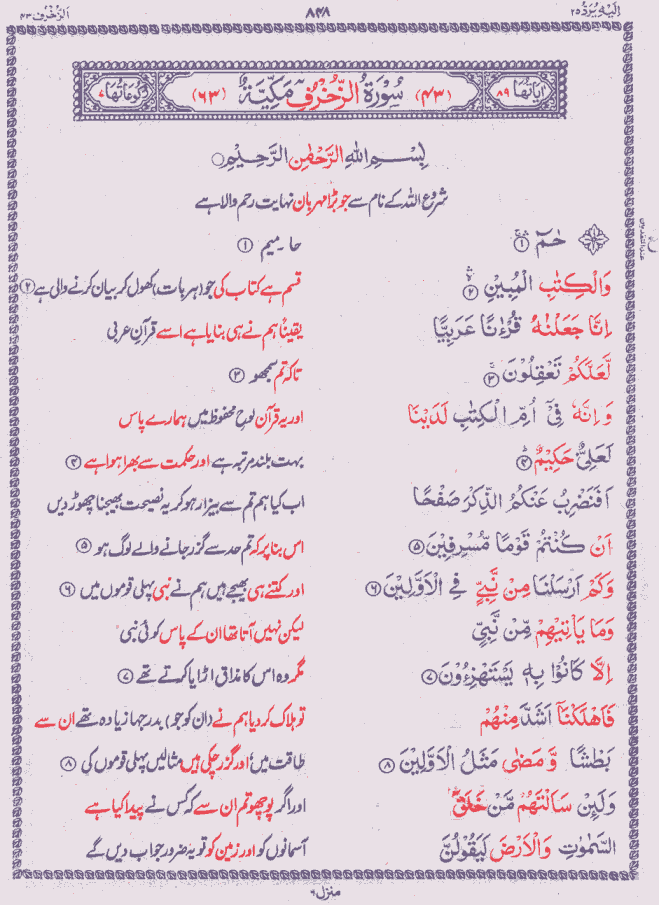 اِلَيْهِ يُرَدُّ ٢٥ ٨٤٨ الزُّخْرُف ٤٣
اٰيَاتُهَا ٨٩ (٤٣) سُوْرَةُ الزُّخْرُفِ مَكِّيَّةٌ (٦٣) رُكُوْعَاتُهَا ٧
بِسْمِ اللّٰهِ الرَّحْمٰنِ الرَّحِيْمِ
شروع اللہ کے نام سے جو بڑا مہربان نہایت رحم والا ہے
حٰمٓ ١ حا۔ میم ١
وَالْكِتٰبِ الْمُبِيْنِ ٢ قسم ہے کتاب کی جو (ہر بات) کھول کر بیان کرنے والی ہے ٢
اِنَّا جَعَلْنٰهُ قُرْءٰنًا عَرَبِيًّا یقیناً ہم نے ہی بنایا ہے اسے قرآنِ عربی
لَّعَلَّكُمْ تَعْقِلُوْنَ ٣ تاکہ تم سمجھو ٣
وَاِنَّهٗ فِيْٓ اُمِّ الْكِتٰبِ لَدَيْنَا اور یہ قرآن لوحِ محفوظ میں ہمارے پاس
لَعَلِيٌّ حَكِيْمٌ ٤ بہت بلند مرتبہ ہے اور حکمت سے بھرا ہوا ہے ٤
اَفَنَضْرِبُ عَنْكُمُ الذِّكْرَ صَفْحًا اب کیا ہم تم سے بیزار ہو کر یہ نصیحت بھیجنا چھوڑ دیں
اَنْ كُنْتُمْ قَوْمًا مُّسْرِفِيْنَ ٥ اس بنا پر کہ تم حد سے گزر جانے والے لوگ ہو ٥
وَكَمْ اَرْسَلْنَا مِنْ نَّبِيٍّ فِي الْاَوَّلِيْنَ ٦ اور کتنے ہی بھیجے ہیں ہم نے نبی پہلی قوموں میں ٦
وَمَا يَاْتِيْهِمْ مِّنْ نَّبِيٍّ لیکن نہیں آتا تھا ان کے پاس کوئی نبی
اِلَّا كَانُوْا بِهٖ يَسْتَهْزِءُوْنَ ٧ مگر وہ اس کا مذاق اڑایا کرتے تھے ٧
فَاَهْلَكْنَآ اَشَدَّ مِنْهُمْ تو ہلاک کر دیا ہم نے (ان کو جو) بدرجہا زیادہ تھے ان سے
بَطْشًا وَّمَضٰى مَثَلُ الْاَوَّلِيْنَ ٨ طاقت میں اور گزر چکی ہیں مثالیں پہلی قوموں کی ٨
وَلَئِنْ سَاَلْتَهُمْ مَّنْ خَلَقَ اور اگر پوچھو تم ان سے کہ کس نے پیدا کیا ہے
السَّمٰوٰتِ وَالْاَرْضَ لَيَقُوْلُنَّ آسمانوں کو اور زمین کو تو یہ ضرور جواب دیں گے
منزل ٦